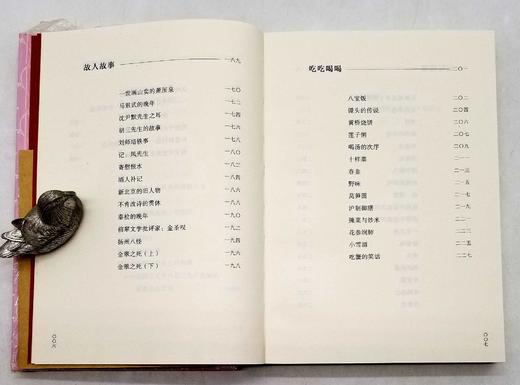 故人故事 一八九
一世画山卖的萧厔泉 一七〇
马君武的晚年 一七二
沈尹默先生之耳 一七四
胡三先生的故事 一七六
刘师培轶事 一七八
记：凤先生 一八〇
寄慰枝水 一八二
酒人补记 一八四
新北京的旧人物 一八六
不肯改诗的贯休 一八八
秦桧的晚年 一九〇
前辈文学批评家：金圣叹 一九二
扬州八怪 一九四
金猴之死（上） 一九六
金猴之死（下） 一九八
〇〇六
吃吃喝喝 二〇一
八宝饭 二〇二
馒头的传说 二〇四
黄桥烧饼 二〇六
莲子粥 二〇八
喝汤的次序 二一〇
十样菜 二一二
春韭 二一三
野味 二一五
莴笋圆 二一七
沪制御膳 二一九
腌菜与炒米 二二一
花卷润肺 二二三
小雪酒 二二五
吃蟹的笑话 二二七
〇〇七